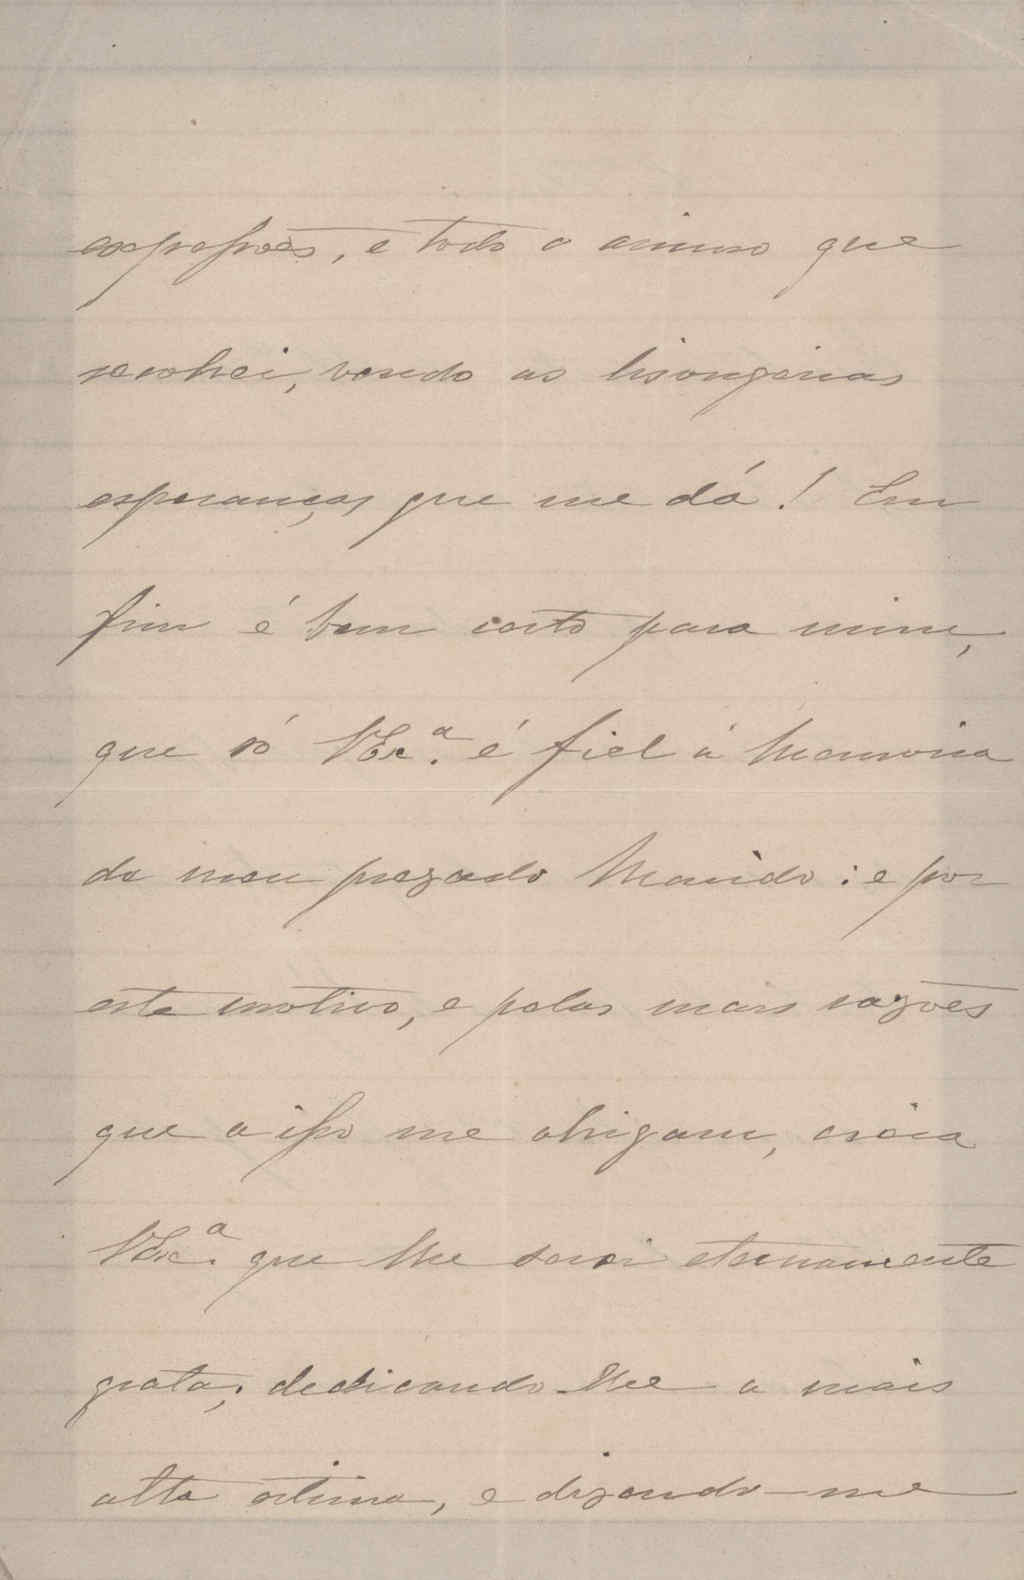 expressoes, e todo o animo que
recobrei, vendo as lisongeiras
esperanças que me dá! Em
fim é bem certo para mim,
que só VExª. é fiel á Memoria
do meu prezado Marido: e por
este motivo, e pelas mais razoes
que a isso me obrigam, creia
VExª. que lhe serei eternamente
grata; dedicando-lhe a mais
alta estima, e dizendo-me